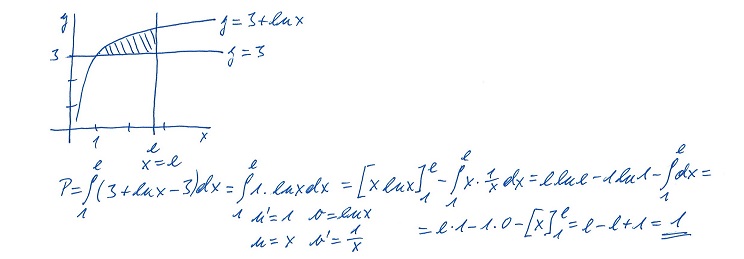 y
y = 3 + ln x
3
y = 3
1
e
x
x = e
P = ∫₁ᵉ (3 + ln x - 3) dx = ∫₁ᵉ 1 · ln x dx = [x ln x]₁ᵉ - ∫₁ᵉ x · 1/x dx = e ln e - 1 ln 1 - ∫₁ᵉ dx =
u' = 1 v = ln x
u = x v' = 1/x
= e · 1 - 1 · 0 - [x]₁ᵉ = e - e + 1 = 1